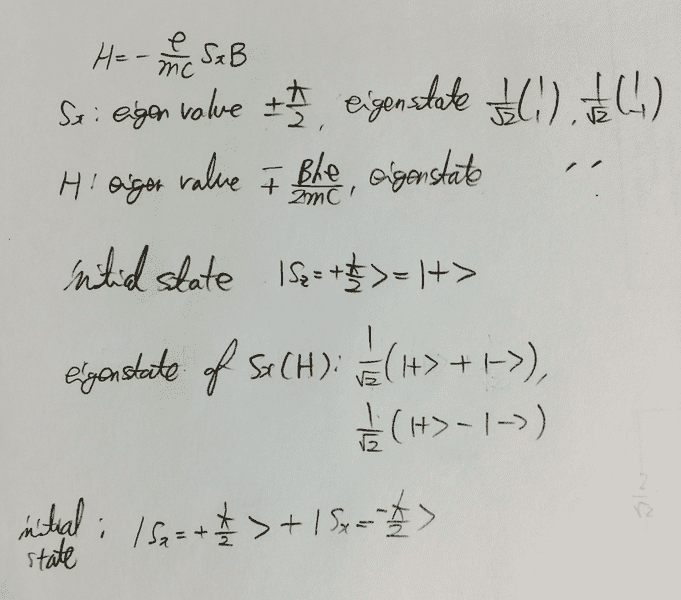 H = - e/mc SxB
Sx : eigen value ± ħ/2, eigenstate 1/√2 (1 1), 1/√2 (1 -1)
H : eigen value ∓ Bħe/2mc, eigenstate 〃
initial state |Sz = + ħ/2 > = |+>
eigenstate of Sx(H) : 1/√2 (|+> + |->),
1/√2 (|+> - |->)
initial state : |Sx = + ħ/2 > + |Sx = - ħ/2 >
2/√2